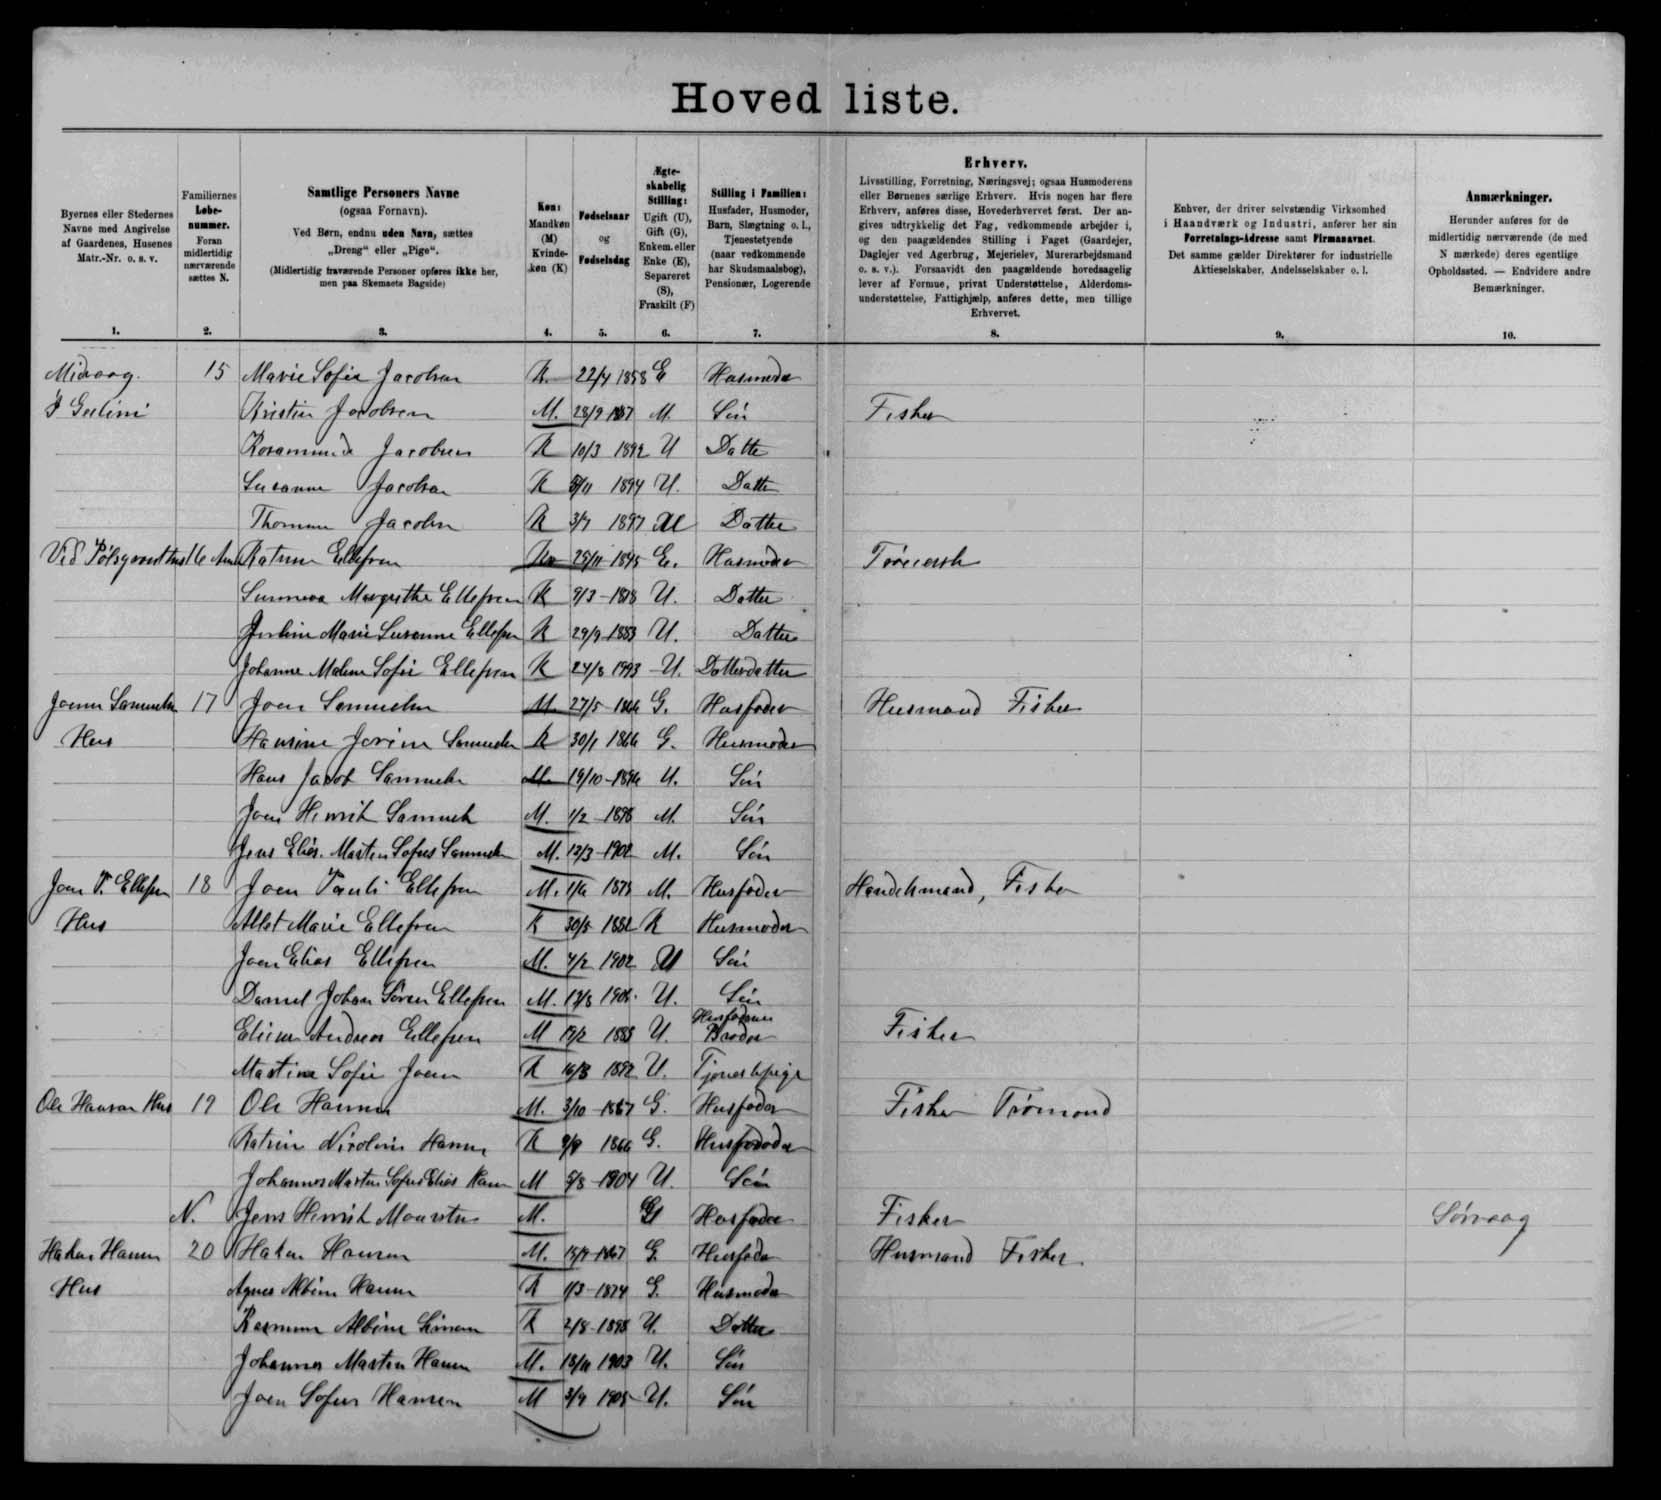 Hoved liste.
Byernes eller Stedernes
Navne med Angivelse
af Gaardenes, Husenes
Matr.-Nr. o. s. v.
1.
Familiernes
Løbe-
nummer.
Foran
midlertidig
nærværende
sættes N.
2.
Samtlige Personers Navne
(ogsaa Fornavn).
Ved Børn, endnu uden Navn, sættes
„Dreng“ eller „Pige“.
(Midlertidig fraværende Personer opføres ikke her,
men paa Skemaets Bagside)
3.
Køn:
Mandkøn
(M)
Kvinde-
køn (K)
4.
Fødselsaar
og
Fødselsdag
5.
Ægte-
skabelig
Stilling:
Ugift (U),
Gift (G),
Enkem. eller
Enke (E),
Separeret
(S),
Fraskilt (F)
6.
Stilling i Familien:
Husfader, Husmoder,
Barn, Slægtning o. l.,
Tjenestetyende
(naar vedkommende
har Skudsmaalsbog),
Pensionær, Logerende
7.
Erhverv.
Livsstilling, Forretning, Næringsvej; ogsaa Husmoderens
eller Børnenes særlige Erhverv. Hvis nogen har flere
Erhverv, anføres disse, Hovederhvervet først. Der an-
gives udtrykkelig det Fag, vedkommende arbejder i,
og den paagældendes Stilling i Faget (Gaardejer,
Daglejer ved Agerbrug, Mejerielev, Murerarbejdsmand
o. s. v.). Forsaavidt den paagældende hovedsagelig
lever af Formue, privat Understøttelse, Alderdoms-
understøttelse, Fattighjælp, anføres dette, men tillige
Erhvervet.
8.
Enhver, der driver selvstændig Virksomhed
i Haandværk og Industri, anfører her sin
Forretnings-Adresse samt Firmanavnet.
Det samme gælder Direktører for industrielle
Aktieselskaber, Andelsselskaber o. l.
9.
Anmærkninger.
Herunder anføres for de
midlertidig nærværende (de med
N mærkede) deres egentlige
Opholdssted. — Endvidere andre
Bemærkninger.
10.
Midvaag. 15 Marie Sofie Jacobsen K. 22/4 1858 E Husmoder
Kristin Jacobsen M. 28/9 U. Søn Fisker
Rosamunda Jacobsen K 10/3 1892 U Datter
Susanne Jacobsen K 1894 U. Datter
Jacobsen K 1897 U Datter
16 Katrine Ellefsen 1845 E. Husmoder
Sunneva Margrethe Ellefsen K 9/3-1878 U. Datter
Marie Susanne Ellefsen K 29/9-1883 U. Datter
Johanne Malene Sofie Ellefsen K 24/8 U. Datterdatter
Joen Samuelsen 17 Joen Samuelsen M. 27/5 G. Husfader Husmand Fisker
Hus Hansine Samuelsen K 30/1 1866 G. Husmoder
Hans Jacob Samuelsen M 19/10-1896 U. Søn
Joen Henrik Samuels M. 1/2 1898 U. Søn
Jens Elias Martin Sofus Samuelsen M. 13/3-1902 U. Søn
Joen P. Ellefsen 18 Joen Pauli Ellefsen M. Husfader Handelsmand, Fisker
Hus Marie Ellefsen K Husmoder
Joen Elias Ellefsen M. 1902 U Søn
Daniel Johan Søren Ellefsen M. U. Søn
Andreas Ellefsen M U. Husfaderens Broder Fisker
Martine Sofie Joensen K 1892 U. Tjenestepige
Ole Hansen Hus 19 Ole Hansen M. 3/10-1867 G. Husfader Fisker Trømand
Katrine Nicoline Hansen K 1866 G.
Johannes Martin Sofus Elias Hansen M 1904 U. Søn
N. Jens Henrik M. G Husfader Fisker Sørvaag
Hakun Hansen 20 Hakun Hansen M. G. Husfader Husmand Fisker
Hus Agnes Albine Hansen K 1/3-1874 G. Husmoder
Albine K 2/8-1898 U. Datter
Johannes Martin Hansen M. 1903 U. Søn
Joen Sofus Hansen M 3/9 1905 U. Søn